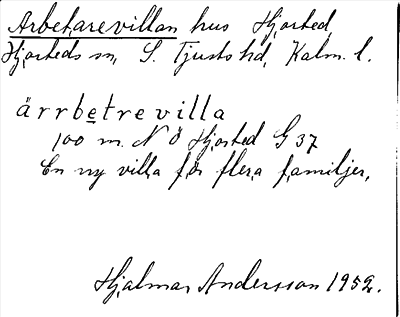 Arbetarevillan hus Hjorted
Hjorteds sn, S. Tjusts hd, Kalm. l.
ärrbetrevilla
100 m. N Ö Hjorted G 37
En ny villa för flera familjer,
Hjalmar Andersson 1952.